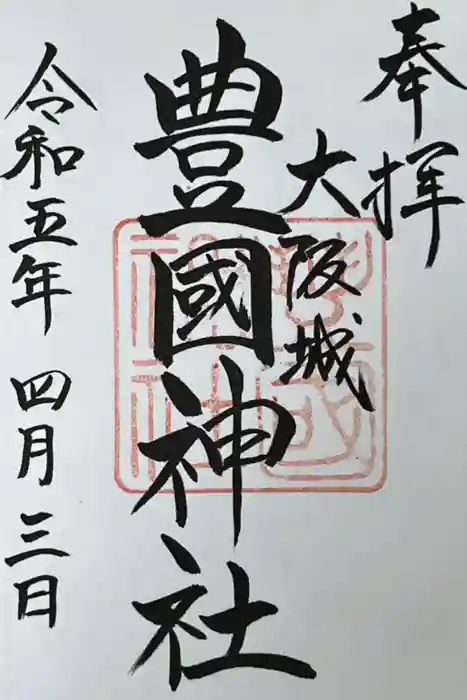 奉拝
大阪城
豊國神社
令和五年四月三日